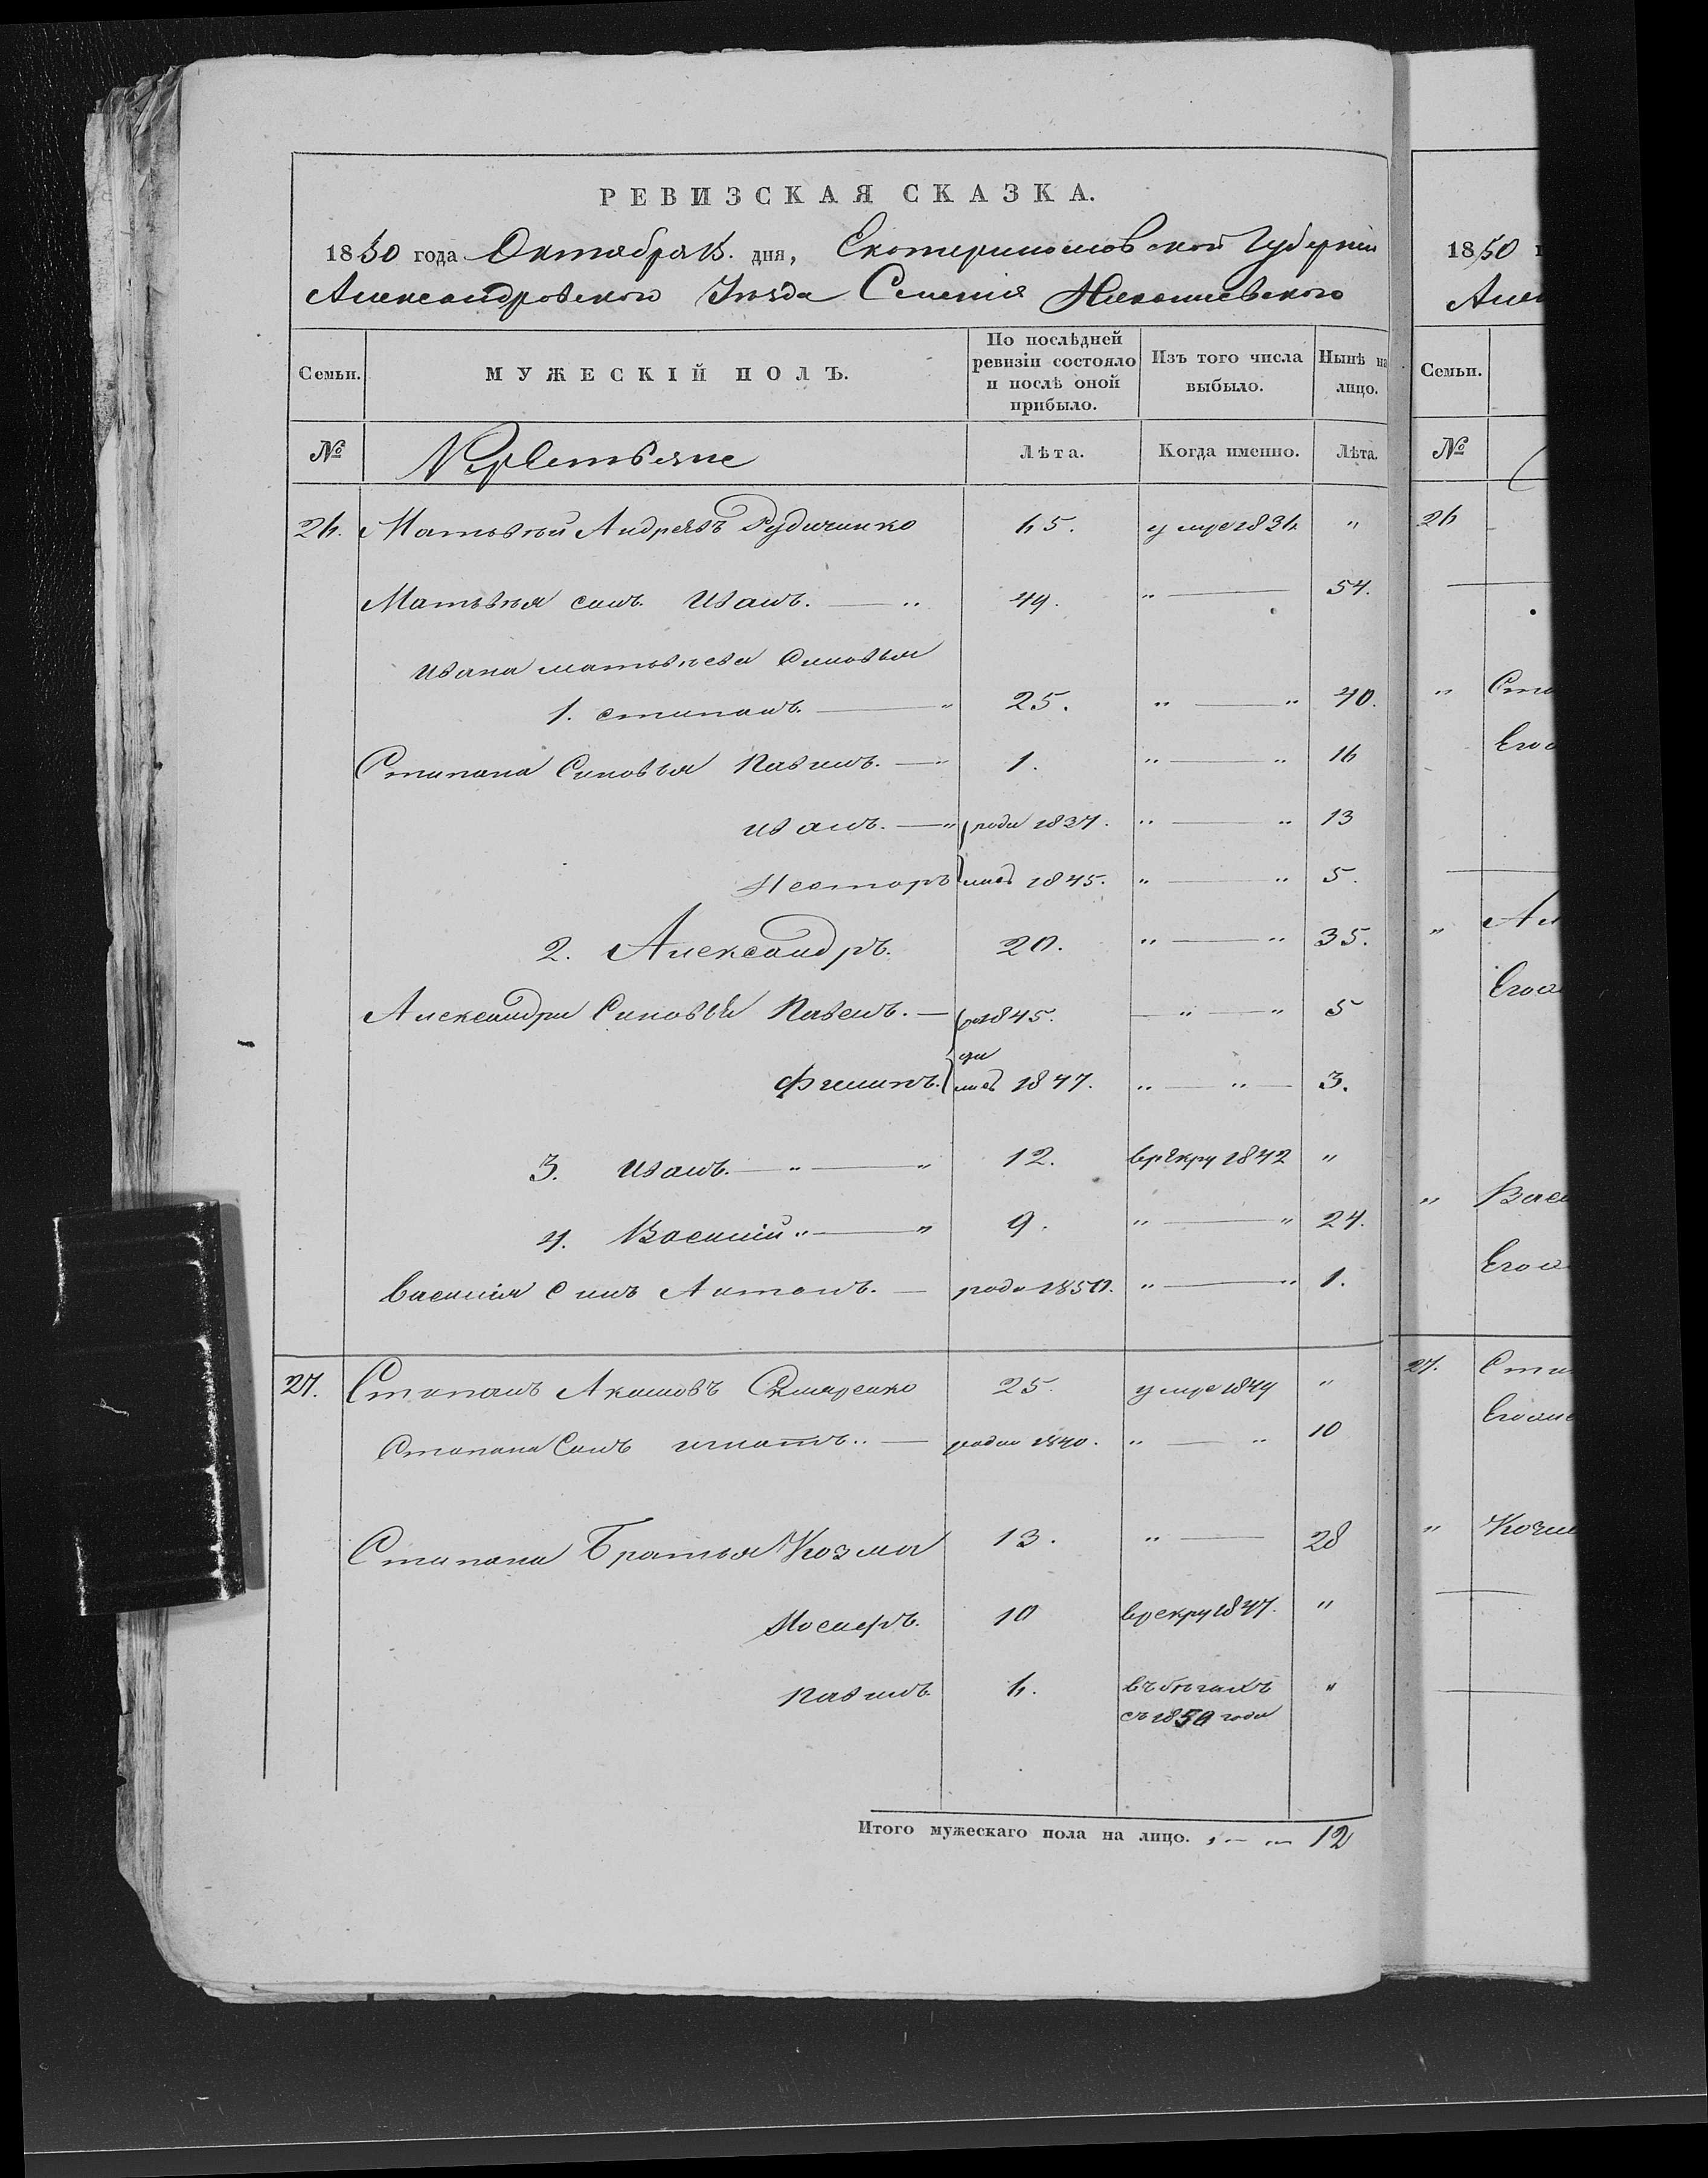 РЕВИЗСКАЯ СКАЗКА.
1850 года Октября 15. дня, Екатеринославской Губернии
Александровского Уезда Селения Николаевского
Семьи. МУЖЕСКІЙ ПОЛЪ. По послѣдней ревизіи состояло и послѣ оной прибыло. Изъ того числа выбыло. Нынѣ на лицо.
№ Лѣта. Когда именно. Лѣта.
26. Матвѣй Андреевъ 65. умре 1836 "
Матвѣя сынъ Иванъ. — " 49. " — 54.
Ивана матвѣева Синовья
1. степанъ. — " 25. " — " 40.
Степана Синовья Павелъ. — " 1. " — " 16
иванъ. — " роди 1837. " — " 13
Несторъ лись 1845. " — " 5.
2. Александръ. 20. " — " 35.
Александра Синовья Павелъ. — 1845. — " — " 5
Филипъ. лись 1847. " — " — 3.
3. иванъ. — " — " 12. врекру 1842 "
4. Василий " — " 9. " — " 24.
василия Синъ Антонъ. — роди 1850. " — " 1.
27. Степанъ Акимовъ 25. умре 1849 "
Степана Синъ игнатъ.. — родил 1840. " — " 10
Степана Братья Козма 13. " — 28
Иосифъ. 10 врекру 1847. "
павелъ 6. въ бѣгахъ "
съ 1850 года
Итого мужескаго пола на лицо. 12
1850
Алек
Семьи.
№
26
" Сте
Его
" Ал
Его
" Васи
Его
27. Сте
Его
" Козм